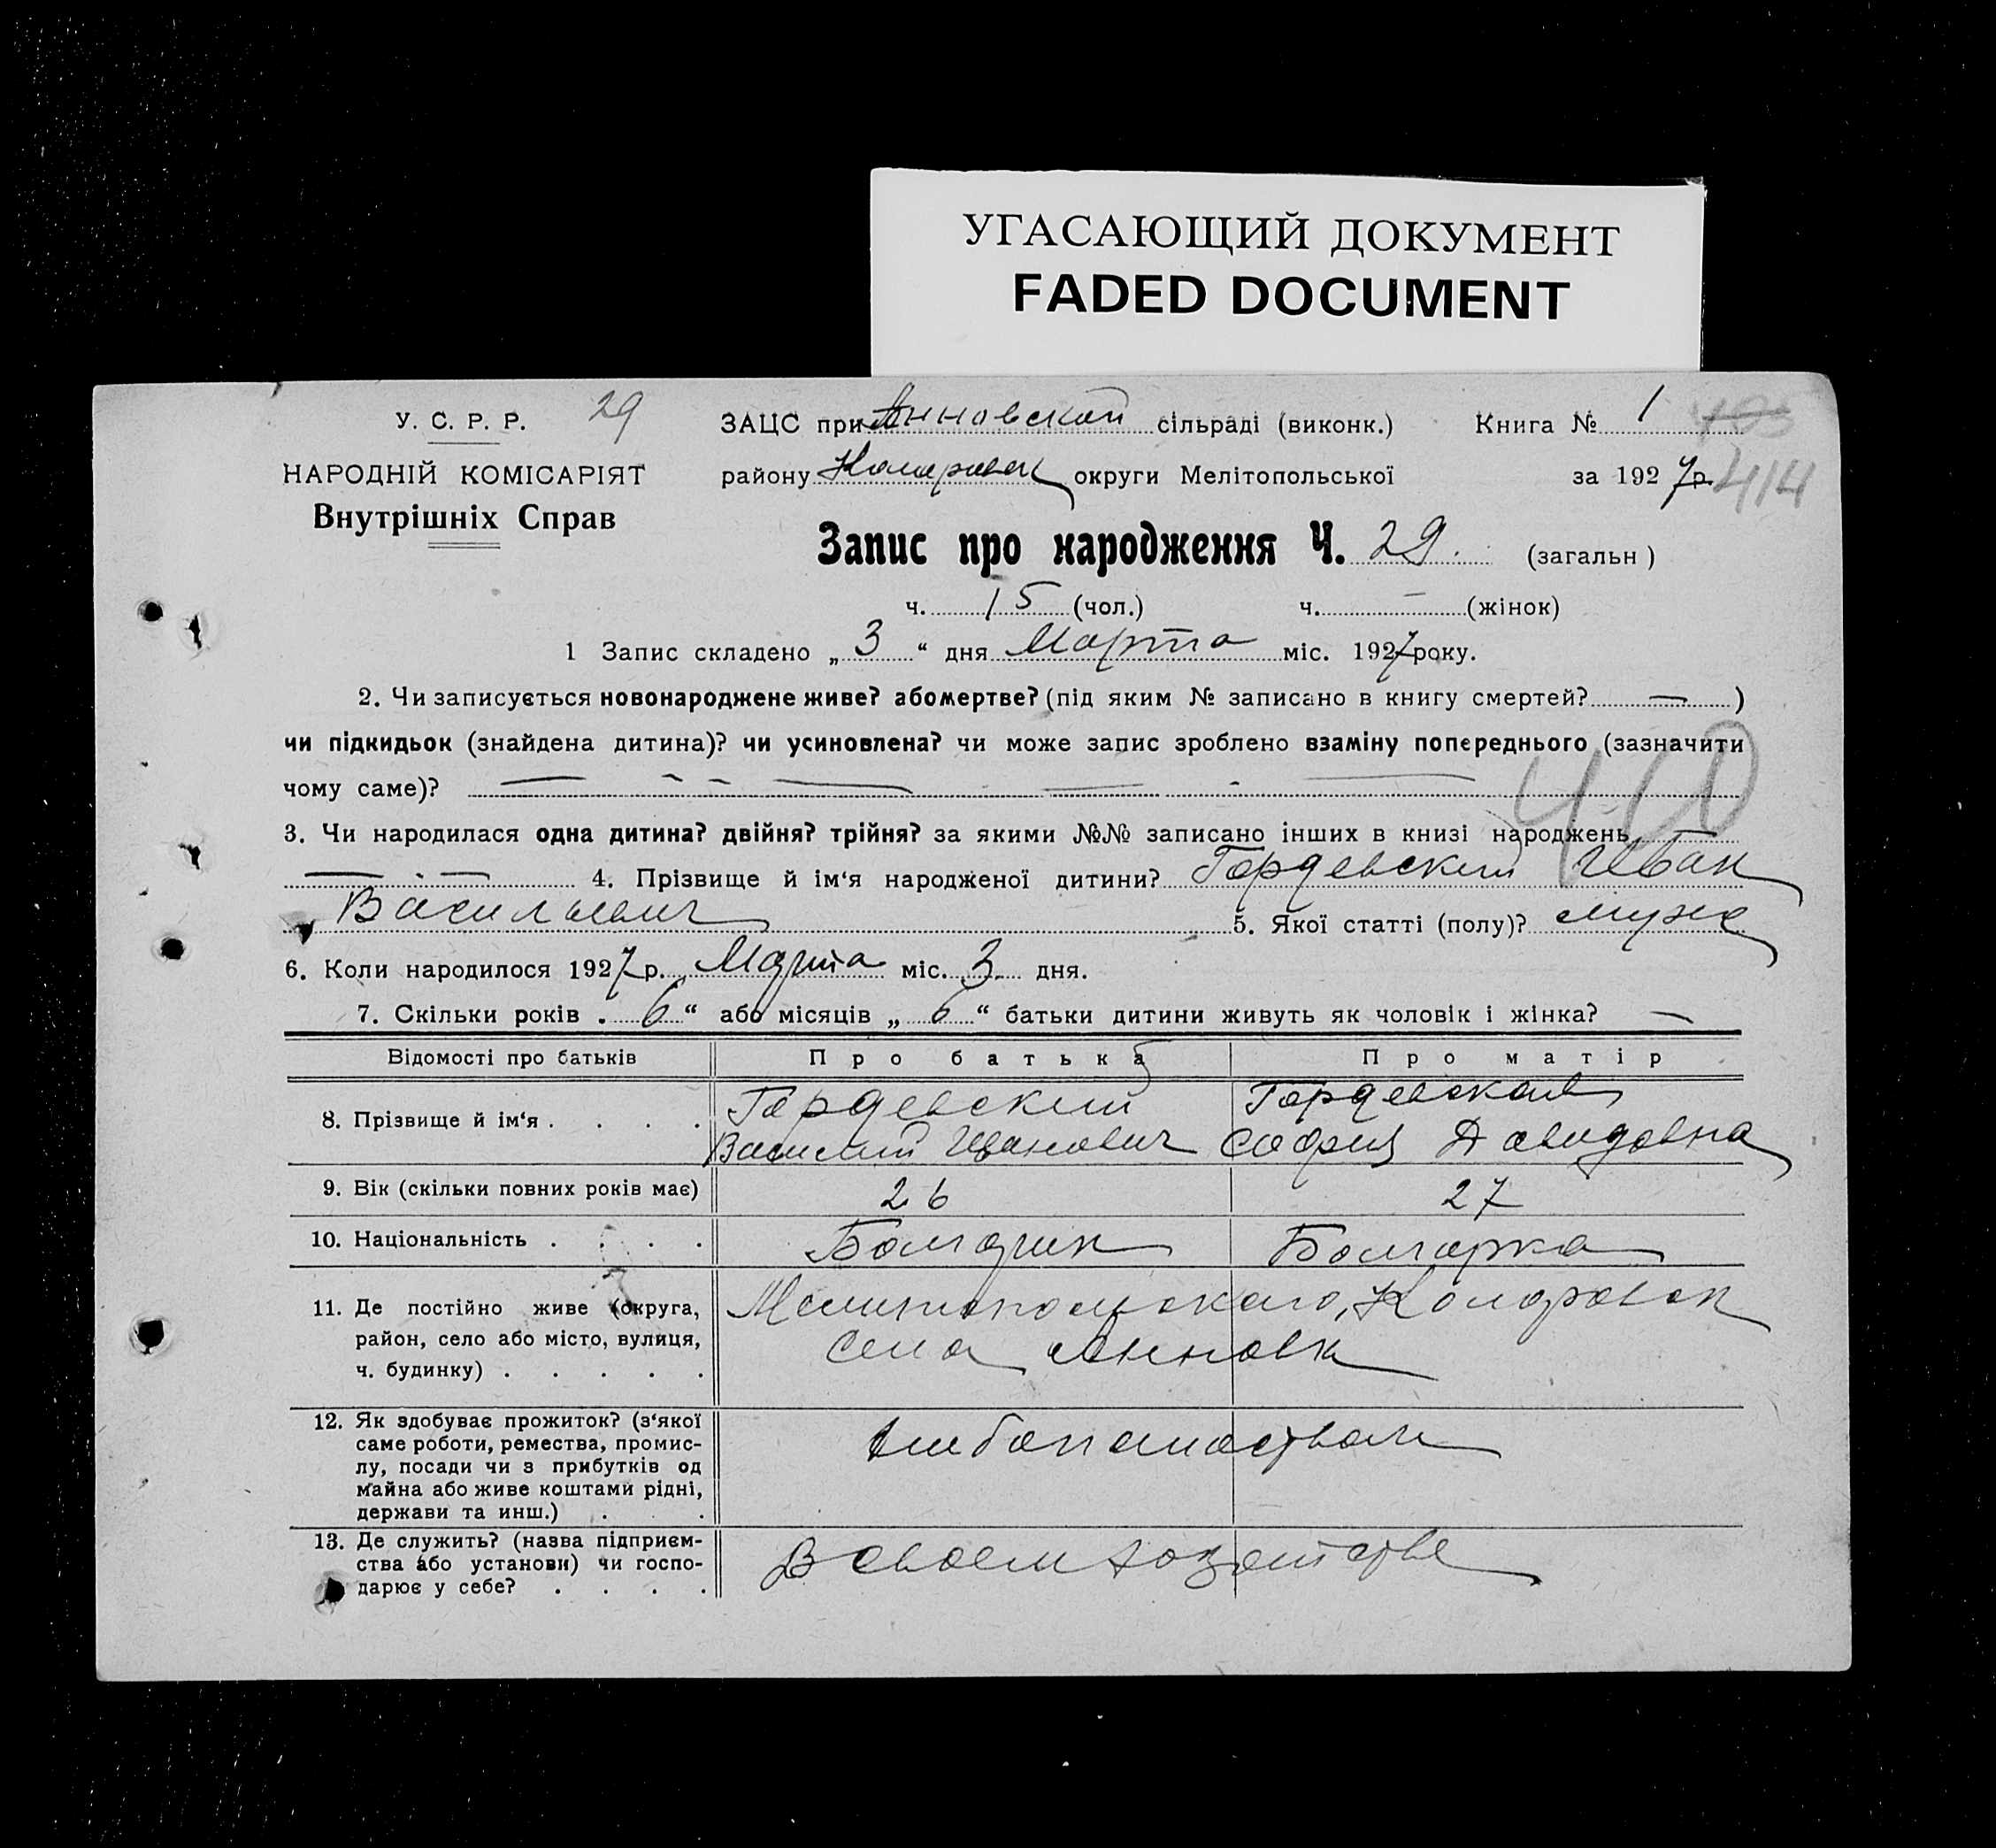 УГАСАЮЩИЙ ДОКУМЕНТ
FADED DOCUMENT
У. С. Р. Р. 29
НАРОДНІЙ КОМІСАРІЯТ
Внутрішніх Справ
ЗАЦС при Анновской сільраді (виконк.) Книга № 1
району Коларовск округи Мелітопольської за 1927 р. 414
Запис про народження Ч. 29. (загальн)
ч. 15 (чол.) ч. — (жінок)
1 Запис складено „ 3 “ дня Марта міс. 1927 року.
2. Чи записується новонароджене живе? або мертве? (під яким № записано в книгу смертей? — )
чи підкидьок (знайдена дитина)? чи усиновлена? чи може запис зроблено взаміну попереднього (зазначити
чому саме)?
3. Чи народилася одна дитина? двійня? трійня? за якими №№ записано інших в книзі народжень
4. Прізвище й ім‘я народженої дитини? Гордевский Иван
Васильевич 5. Якої статті (полу)? муж
6. Коли народилося 1927 р. Марта міс. 3 дня.
7. Скільки років „ 6 “ або місяців „ 6 “ батьки дитини живуть як чоловік і жінка? —
Відомості про батьків Про батька Про матір
8. Прізвище й ім‘я . . . . Гордевский Василий Иванович Гордевская София Давидовна
9. Вік (скільки повних років має) 26 27
10. Національність . . . . Болгарин Болгарка
11. Де постійно живе (округа, Мелитопольского, Коларовск
район, село або місто, вулиця, села Анновк
ч. будинку) . . . . .
12. Як здобуває прожиток? (з‘якої
саме роботи, ремества, промис- хлебопашеством
лу, посади чи з прибутків од
майна або живе коштами рідні,
держави та инш.) . . .
13. Де служить? (назва підприєм-
ства або установи) чи госпо- В своем хозяйстве
дарює у себе? . . . .